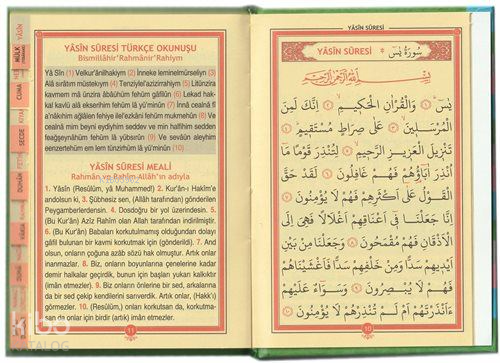 YÂSİN SÛRESİ
YÂSÎN SÛRESİ TÜRKÇE OKUNUŞU
Bismillâhir'Rahmânir'Rahiym
Yâ Sîn (1) Velkur'ânilhakiym (2) İnneke leminelmürseliyn (3)
Alâ sırâtım müstekıym (4) Tenziylel'azizirrahiym (5) Litünzira
kavmem mâ ünzira âbâühüm fehüm gâfilûn (6) Lekad hak-
kal kavlü alâ ekserihim fehüm lâ yü'minûn (7) İnnâ cealnâ fî
a'nâkıhim ağlâlen fehiye ilel'ezkâni fehüm mukmehûn (8) Ve
cealnâ min beyni eydiyhim seddev ve min halfihim sedden
feağşeynâhüm fehüm lâ yübsırûn (9) Ve sevâün aleyhim
eenzertehüm em lem tünzirhüm lâ yü'minûn (10)
YÂSÎN SÛRESİ MEÂLİ
Rahmân ve Rahîm Allâh'ın adıyla
1. Yâsîn (Resûlüm, yâ Muhammed!) 2. Kur'ân-ı Hakîm'e
andolsun ki, 3. Şübhesiz sen, (Allah tarafından) gönderilen
Peygamberlerdensin. 4. Dosdoğru bir yol üzerindesin. 5.
(Bu Kur'ân) Azîz Rahîm olan Allah tarafından indirilmiştir.
6. (Bu Kur'ân) Babaları korkutulmamış olduğundan dolayı
gâfil bulunan bir kavmi korkutmak için (gönderildi). 7. And
olsun, onların çoğuna azâb sözü hak olmuştur. Artık onlar
inanmazlar. 8. Biz, onların boyunlarına çenelerine kadar
demir halkalar geçirdik, bunun için başları yukarı kalkıktır
(îmân etmezler). 9. Biz onların önlerine bir sed, arkalarına
da bir sed çekip kendilerini sarıverdik. Artık onlar, (Hakk'ı)
görmezler. 10. (Resûlüm,) onları korkutsan da, korkutma-
san de onlar için birdir (artık) îmân etmezler.
11
YÂSİN SÛRESİ
YÂSÎN SÛRESİ * سُورَةُ يٰسٓ
بِسْمِ اللّٰهِ الرَّحْمٰنِ الرَّحِيمِ
يٰسٓ ﴿١﴾ وَالْقُرْاٰنِ الْحَكِيمِ ﴿٢﴾ اِنَّكَ لَمِنَ
الْمُرْسَلِينَ ﴿٣﴾ عَلٰى صِرَاطٍ مُسْتَقِيمٍ ﴿٤﴾
تَنْزِيلَ الْعَزِيزِ الرَّحِيمِ ﴿٥﴾ لِتُنْذِرَ قَوْمًا مَا
اُنْذِرَ اٰبَاؤُهُمْ فَهُمْ غَافِلُونَ ﴿٦﴾ لَقَدْ حَقَّ
الْقَوْلُ عَلٰى اَكْثَرِهِمْ فَهُمْ لَا يُؤْمِنُونَ ﴿٧﴾
اِنَّا جَعَلْنَا فِى اَعْنَاقِهِمْ اَغْلَالًا فَهِىَ اِلَى
الْاَذْقَانِ فَهُمْ مُقْمَحُونَ ﴿٨﴾ وَجَعَلْنَا مِنْ بَيْنِ
اَيْدِيهِمْ سَدًّا وَمِنْ خَلْفِهِمْ سَدًّا فَاَغْشَيْنَاهُمْ
فَهُمْ لَا يُبْصِرُونَ ﴿٩﴾ وَسَوَاءٌ عَلَيْهِمْ
ءَاَنْذَرْتَهُمْ اَمْ لَمْ تُنْذِرْهُمْ لَا يُؤْمِنُونَ ﴿١٠﴾
10
YÂSİN
MÜLK
CUMA
SECDE
DUHÂN
FETİH